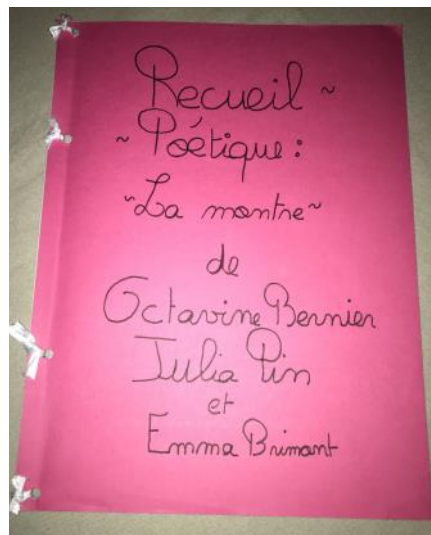 Recueil ~
~ Poétique :
~ La montre ~
de
Octavine Bernier
Julia Pin
et
Emma Brimant